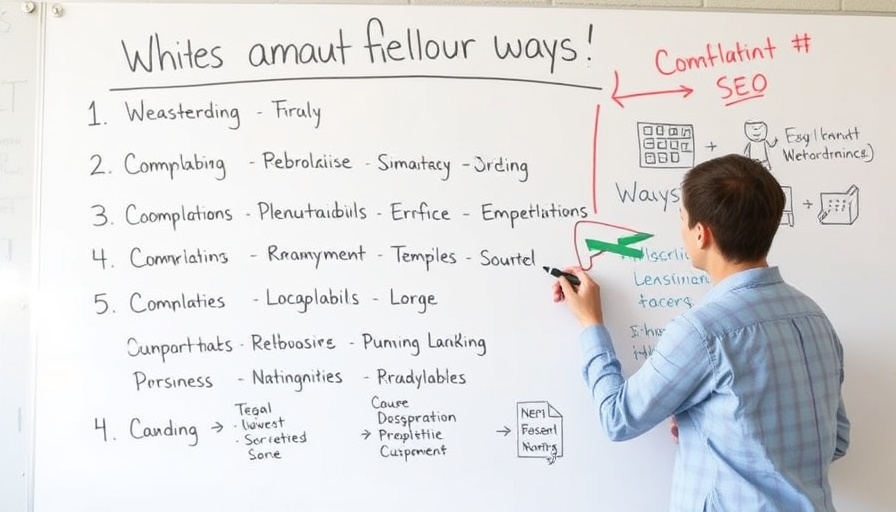 Whites amaut fiellour ways!
1. Weasterding - Firuly
2. Complabing - Pebrolaiise - Simaitacy - Jrding
3. Coomplations - Plenutaidiils - Errfice - Empetlitions
4. Comnriating - Rnramyment - Temples - Sourtel
5. Complaties - Locgplabils - Lorge
Cunporthats - Relbuosire - Puming Lanking
Porsiness - Natingnities - Rradylables
4. Canding → Tegal
· Liwest
· Sorietied
Sone
Caure
Dosgpration
→ Preplitie
Curpoment
→ Neri
Fesenl
Comflatint #
SEO
+
Ways
+
Lensiman
facers